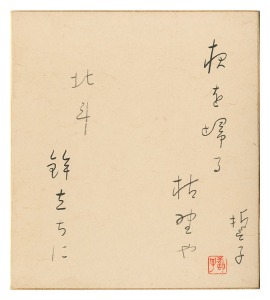 夜を帰る
枯野や
北斗
鉾立ちに
哲子